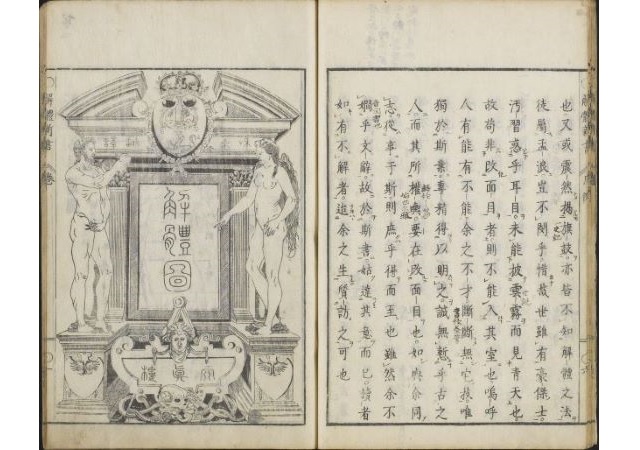 也又或震然揚旗鼓亦皆不知解體之法
徒屬孟浪豈不悶乎惜哉世雖有豪傑士
汚習惑乎耳目未能披雲霧而見青天也
故苟非改面目者則不能入其室也嗚呼
人有能有不能余之不才斷斷無它技唯
獨於斯業專精得以明之誠無慙乎古之
人而其所權輿要在改面目也如與余同
志從事于斯則庶乎得而至也雖然余不
嫺乎文辭故於斯書姑達其意而已讀者
如有不解者迨余之生質訪之可也
解體圖
天眞樓
解體新書 卷